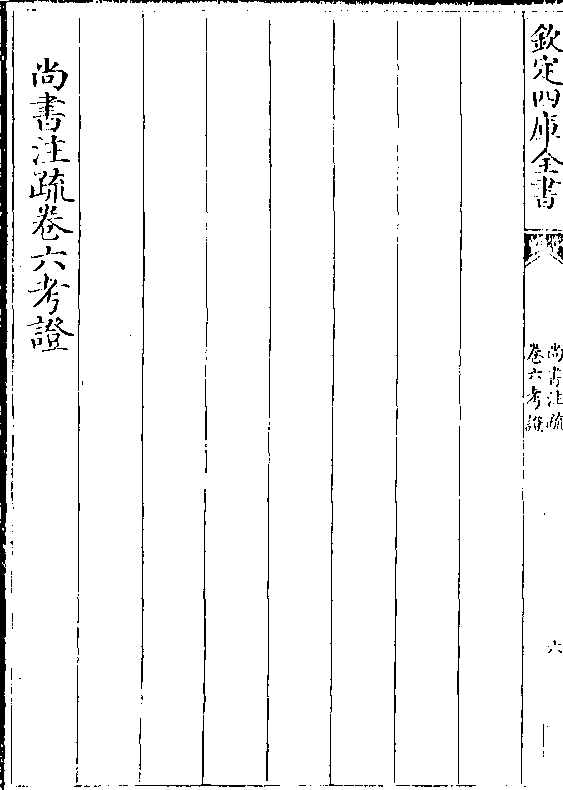 欽定四庫全書
尚書注疏
卷六考證
六
尚書注疏卷六考證